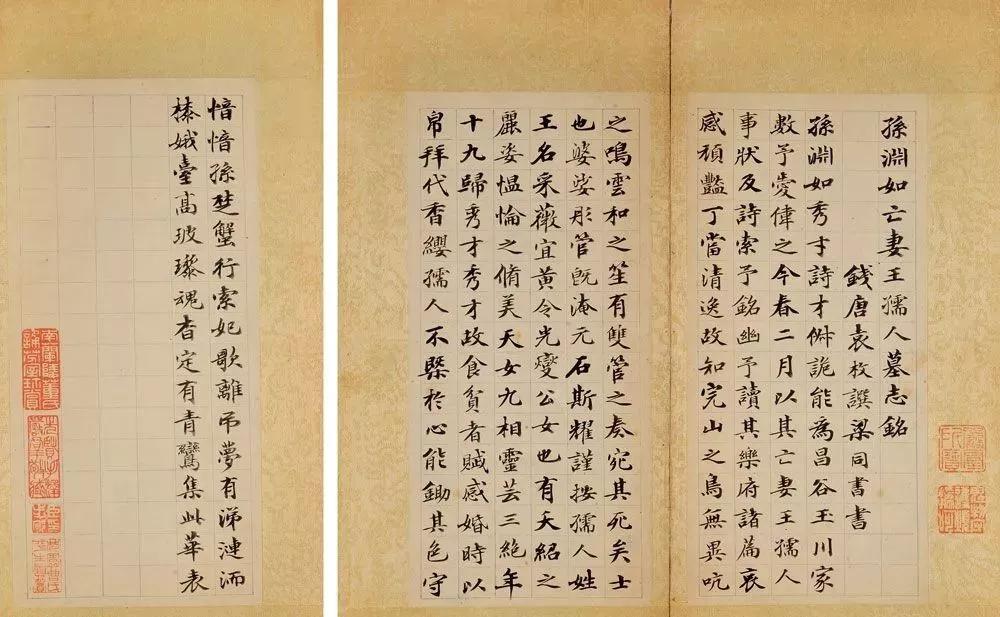 孫淵如亡妻王孺人墓志銘
錢唐袁枚譔梁同書書
孫淵如秀才詩才俶詭能為昌谷玉川家
數予愛偉之今春二月以其亡妻王孺人
事狀及詩索予銘幽予讀其樂府諸篇哀
感頑豔丁當清逸故知完山之鳥無異吭
之鳴雲和之笙有雙管之奏宛其死矣士
也婆娑彤管既淹元石斯耀謹按孺人姓
王名采薇宜黃令光燮公女也有夭紹之
麗姿愠惀之脩美天女九相靈芸三絕年
十九歸秀才秀才故食貧者感婚時以
帛拜代香纓孺人不槩於心能鋤其色守
愔愔孫楚蟹行索妃歌離吊夢有涕漣洏
榛娥臺高玻瓈魂杳定有青鸞集此華表